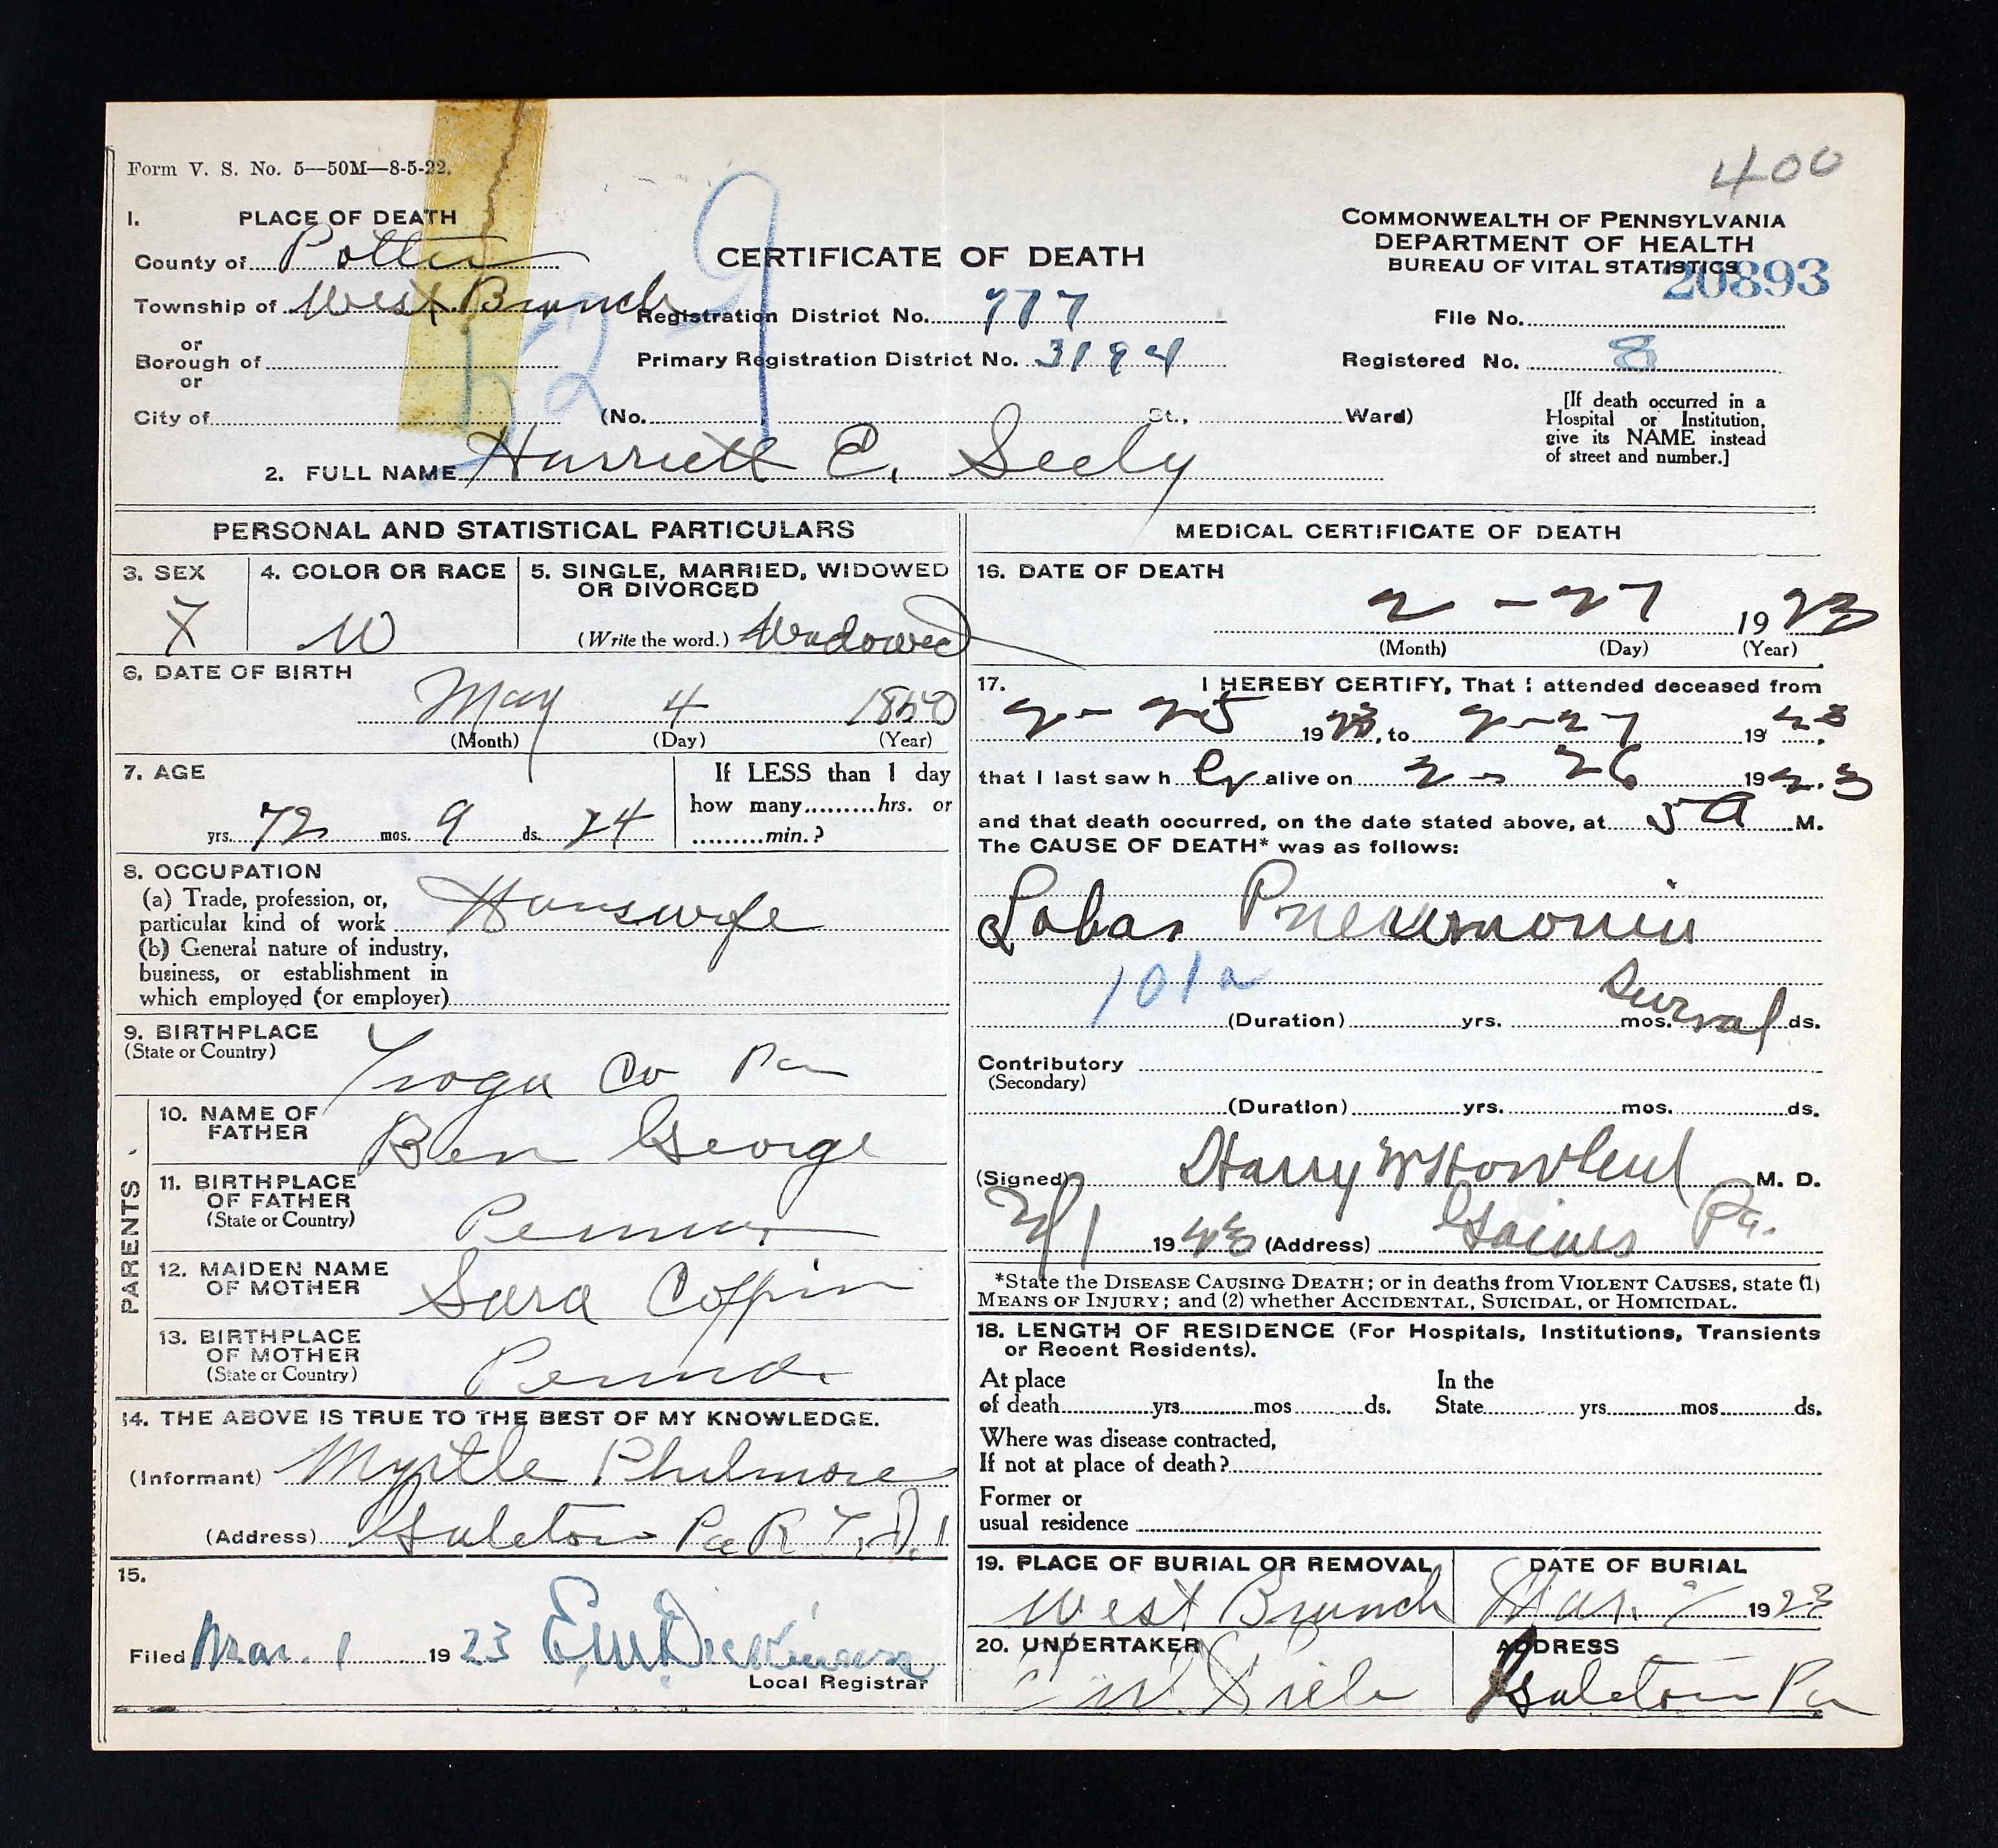 Form V. S. No. 5—50M—8-5-22.
400
1. PLACE OF DEATH
County of Potter
Township of West Branch
or
Borough of
or
City of
CERTIFICATE OF DEATH
Registration District No. 977
Primary Registration District No. 3194
(No. St., Ward)
629
COMMONWEALTH OF PENNSYLVANIA
DEPARTMENT OF HEALTH
BUREAU OF VITAL STATISTICS
20893
File No.
Registered No. 8
[If death occurred in a
Hospital or Institution,
give its NAME instead
of street and number.]
2. FULL NAME Harriett E. Seely
PERSONAL AND STATISTICAL PARTICULARS
3. SEX
F
4. COLOR OR RACE
W
5. SINGLE, MARRIED, WIDOWED
OR DIVORCED
(Write the word.) Widowed
6. DATE OF BIRTH
May 4 1850
(Month) (Day) (Year)
7. AGE
yrs. 72 mos. 9 ds. 24
If LESS than 1 day
how many.........hrs. or
.........min.?
8. OCCUPATION
(a) Trade, profession, or,
particular kind of work Houswife
(b) General nature of industry,
business, or establishment in
which employed (or employer)
9. BIRTHPLACE
(State or Country)
Tioga Co Pa
PARENTS
10. NAME OF
FATHER
Ben George
11. BIRTHPLACE
OF FATHER
(State or Country)
Penna.
12. MAIDEN NAME
OF MOTHER
Sara Coffin
13. BIRTHPLACE
OF MOTHER
(State or Country)
Penna.
14. THE ABOVE IS TRUE TO THE BEST OF MY KNOWLEDGE.
(Informant) Myrtle Philmore
(Address) Galeton Pa R.F.D. 1
15.
Filed Mar. 1 1923 E.W. Dickinson
Local Registrar
MEDICAL CERTIFICATE OF DEATH
16. DATE OF DEATH
2 - 27 1923
(Month) (Day) (Year)
17. I HEREBY CERTIFY, That I attended deceased from
2 - 25 1923, to 2 - 27 1923
that I last saw her alive on 2 - 26 1923
and that death occurred, on the date stated above, at 5 A M.
The CAUSE OF DEATH* was as follows:
Lobar Pneumonia
101a
(Duration) yrs. mos. Several ds.
Contributory
(Secondary)
(Duration) yrs. mos. ds.
(Signed) Harry W Howland M. D.
1923 (Address) Gaines Pa.
*State the DISEASE CAUSING DEATH; or in deaths from VIOLENT CAUSES, state (1)
MEANS OF INJURY; and (2) whether ACCIDENTAL, SUICIDAL, or HOMICIDAL.
18. LENGTH OF RESIDENCE (For Hospitals, Institutions, Transients
or Recent Residents).
At place
of death yrs. mos. ds.
In the
State yrs. mos. ds.
Where was disease contracted,
If not at place of death?
Former or
usual residence
19. PLACE OF BURIAL OR REMOVAL
West Branch
DATE OF BURIAL
Mar. 1923
20. UNDERTAKER
ADDRESS
Galeton Pa